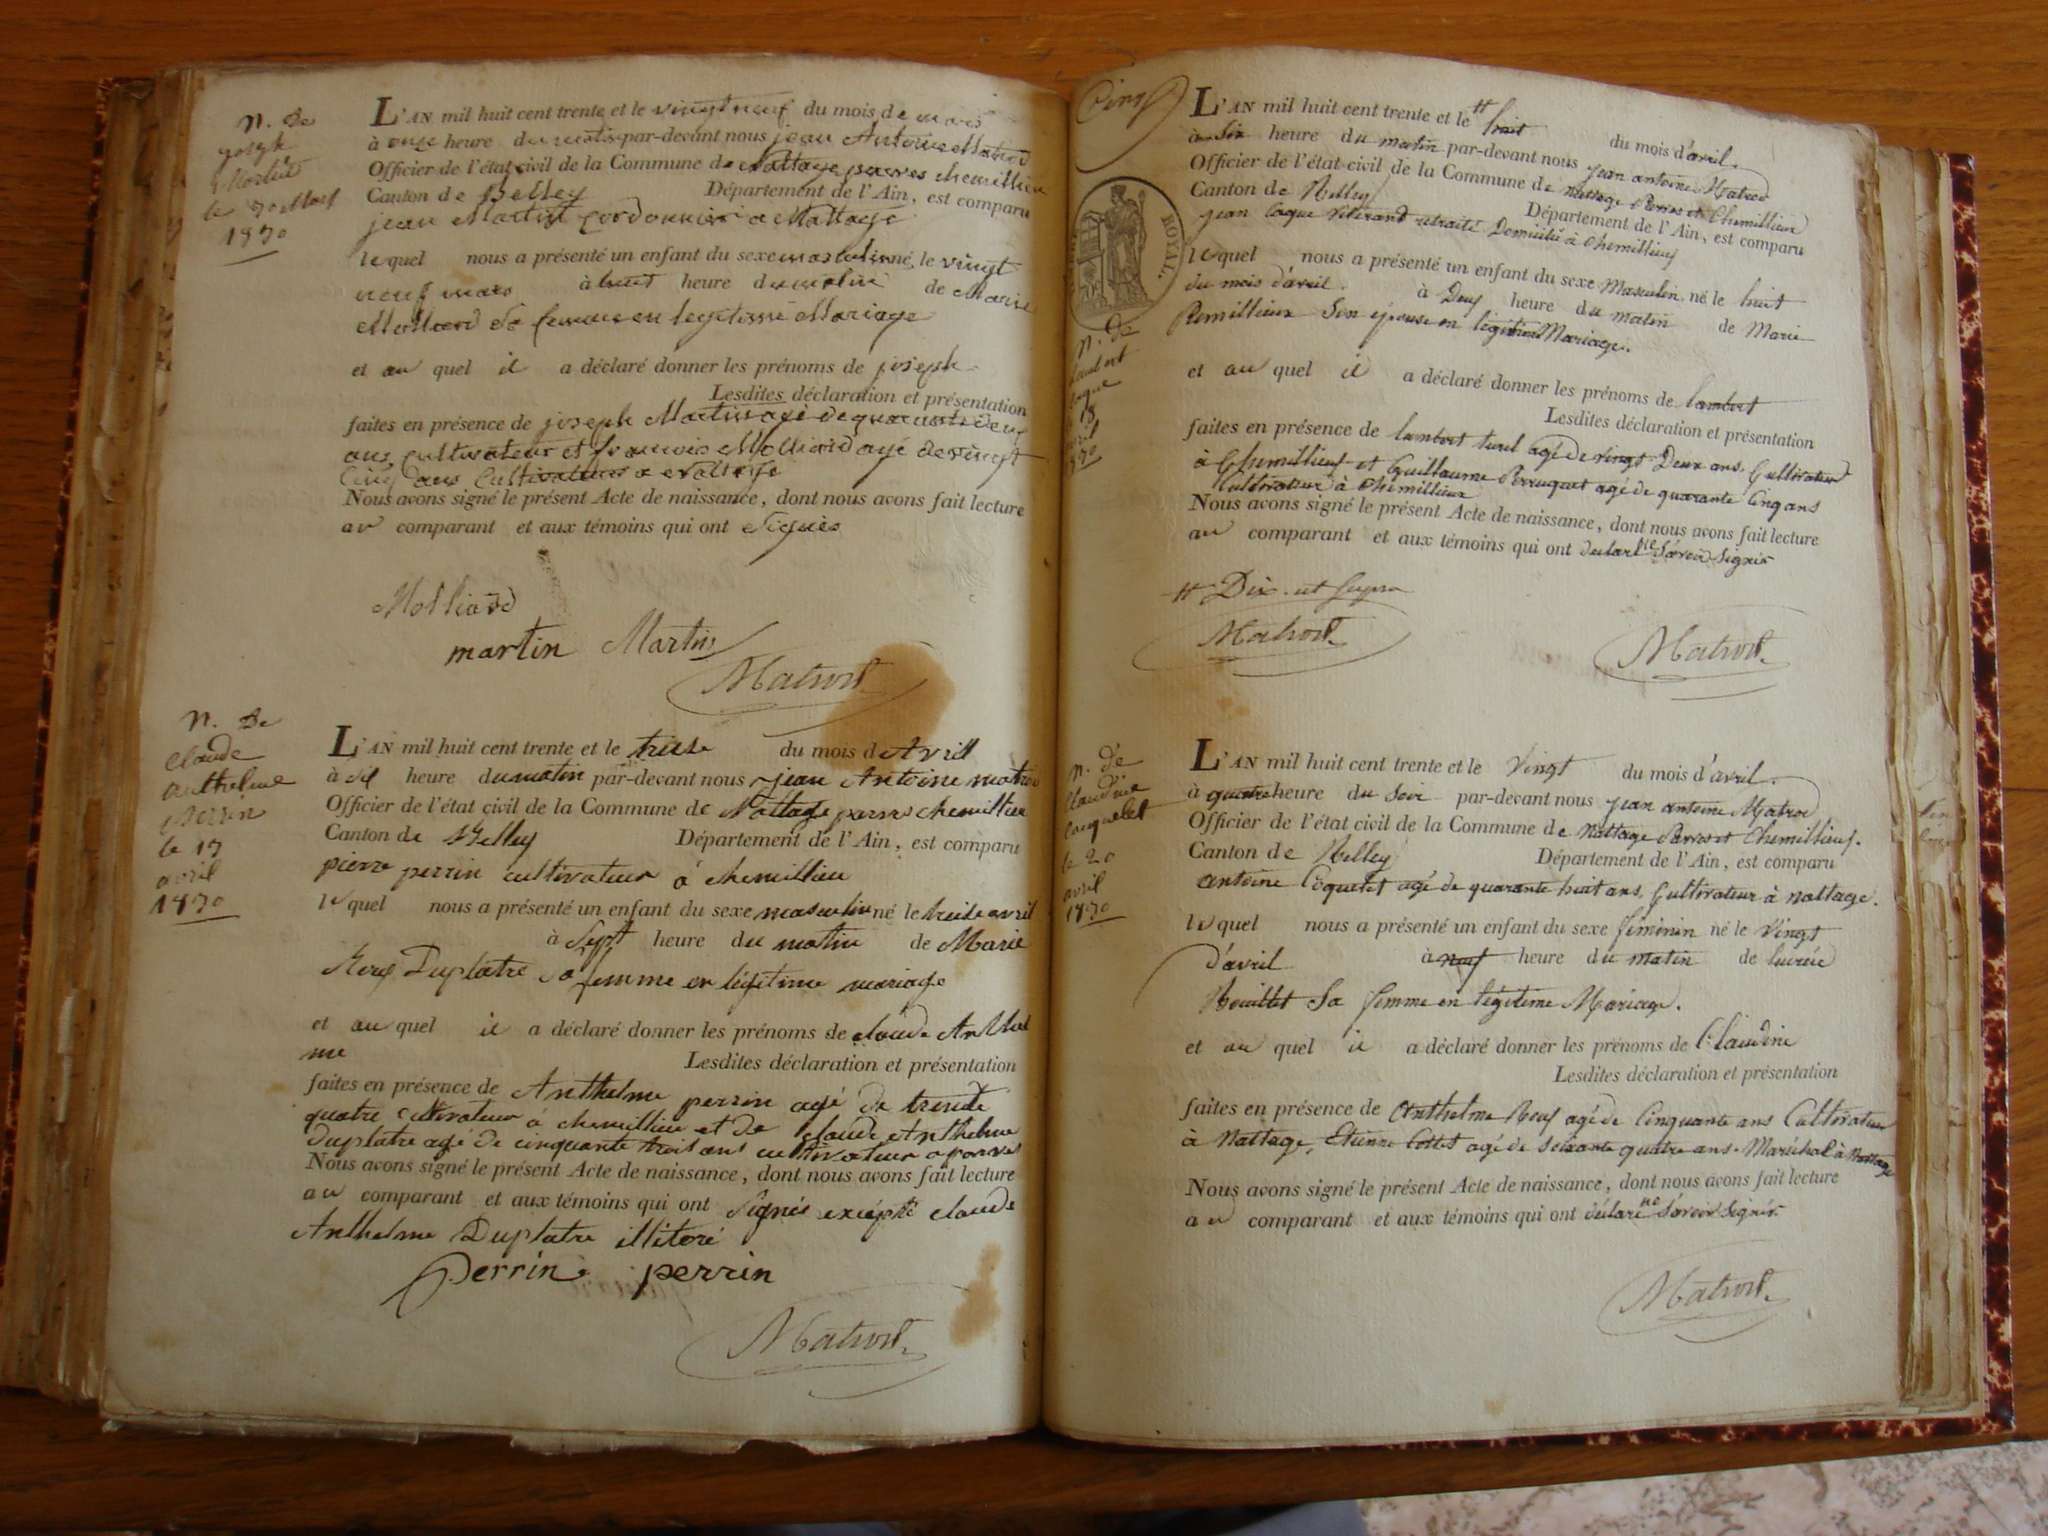 N. de
joseph
Martin
1830
L'AN mil huit cent trente et le vingt neuf du mois de mars
à onze heure du matin par-devant nous jean Antoine Matrod
Officier de l'état civil de la Commune de Nattage parves chemillieu
Canton de Belley Département de l'Ain, est comparu
jean Martin cordonnier a Nattage
lequel nous a présenté un enfant du sexe masculin né le vingt
neuf mars à huit heure du matin de Marie
Molliard sa femme en legitime Mariage
et au quel il a déclaré donner les prénoms de joseph
Lesdites déclaration et présentation
faites en présence de joseph Martin agé de quarante deux
ans cultivateur et francois Molliard agé de vingt
cinq ans cultivateur a Nattage
Nous avons signé le présent Acte de naissance, dont nous avons fait lecture
au comparant et aux témoins qui ont signés
Molliard
martin Martin
Matrod
N. de
claude
anthelme
Perrin
le 13
avril
1830
L'AN mil huit cent trente et le treise du mois d Avril
à dix heure du matin par-devant nous jean Antoine matrod
Officier de l'état civil de la Commune de Nattage parves chemillieu
Canton de Belley Département de l'Ain, est comparu
pierre perrin cultivateur à chemillieu
lequel nous a présenté un enfant du sexe masculin né le treise avril
à sept heure du matin de Marie
Roux Duplatre sa femme en légitime mariage
et au quel il a déclaré donner les prénoms de claude Anthel
me Lesdites déclaration et présentation
faites en présence de Anthelme perrin agé de trente
quatre cultivateur à chemillieu et de claude Anthelme
Duplatre agé de cinquante trois ans cultivateur a parves
Nous avons signé le présent Acte de naissance, dont nous avons fait lecture
au comparant et aux témoins qui ont signés excepté claude
Anthelme Duplatre illitoré
Perrin perrin
Matrod
Cinq
ROYAL.
N. de
lambert
18
avril
1830
L'AN mil huit cent trente et le # huit du mois d'avril.
à six heure du matin par-devant nous jean antoine Matrod
Officier de l'état civil de la Commune de nattage Parves et Chemillieux
Canton de Belley Département de l'Ain, est comparu
jean Coque Vétérand retraité Domicilié à Chemillieux
lequel nous a présenté un enfant du sexe Masculin né le huit
du mois d'avril. à Deux heure du matin de Marie
Remillieux son épouse en légitime Mariage.
et au quel il a déclaré donner les prénoms de lambert
Lesdites déclaration et présentation
faites en présence de lambert turel agé de vingt Deux ans. Cultivateur
à Chemillieux et Guillaume Perruquet agé de quarante Cinq ans
Cultivateur à Chemillieux
Nous avons signé le présent Acte de naissance, dont nous avons fait lecture
au comparant et aux témoins qui ont déclaré ne sávoir signér
# Dix. ut supra
Matrod. Matrod.
N. de
Claudine
coquetet
le 20
avril
1830
L'AN mil huit cent trente et le Vingt du mois d'avril.
à quatre heure du soir par-devant nous jean antoine Matrod
Officier de l'état civil de la Commune de Nattage Parves et Chemillieux.
Canton de Belley Département de l'Ain, est comparu
antoine Coquetet agé de quarante huit ans, Cultivateur à nattage.
lequel nous a présenté un enfant du sexe féminin né le Vingt
d'avril à neuf heure du matin de lucréce
Bouillet sa femme en légitime Mariage.
et au quel il a déclaré donner les prénoms de Claudine
Lesdites déclaration et présentation
faites en présence de Anthelme Roux agé de Cinquante ans Cultivateur
à Nattage, Etienne Cottet agé de soixante quatre ans. Maréchal à Nattage
Nous avons signé le présent Acte de naissance, dont nous avons fait lecture
au comparant et aux témoins qui ont déclaré ne sávoir signér
Matrod.